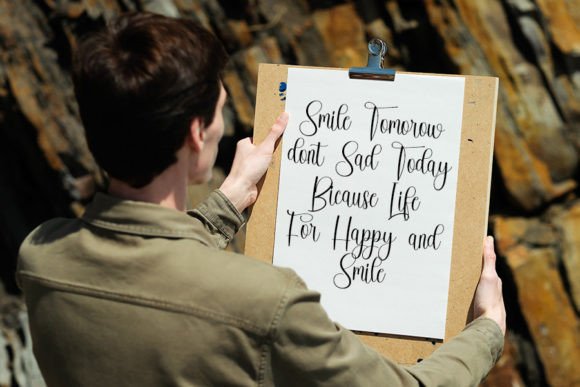 Smile Tomorow
dont Sad Today
Bicause Life
For Happy and
Smile